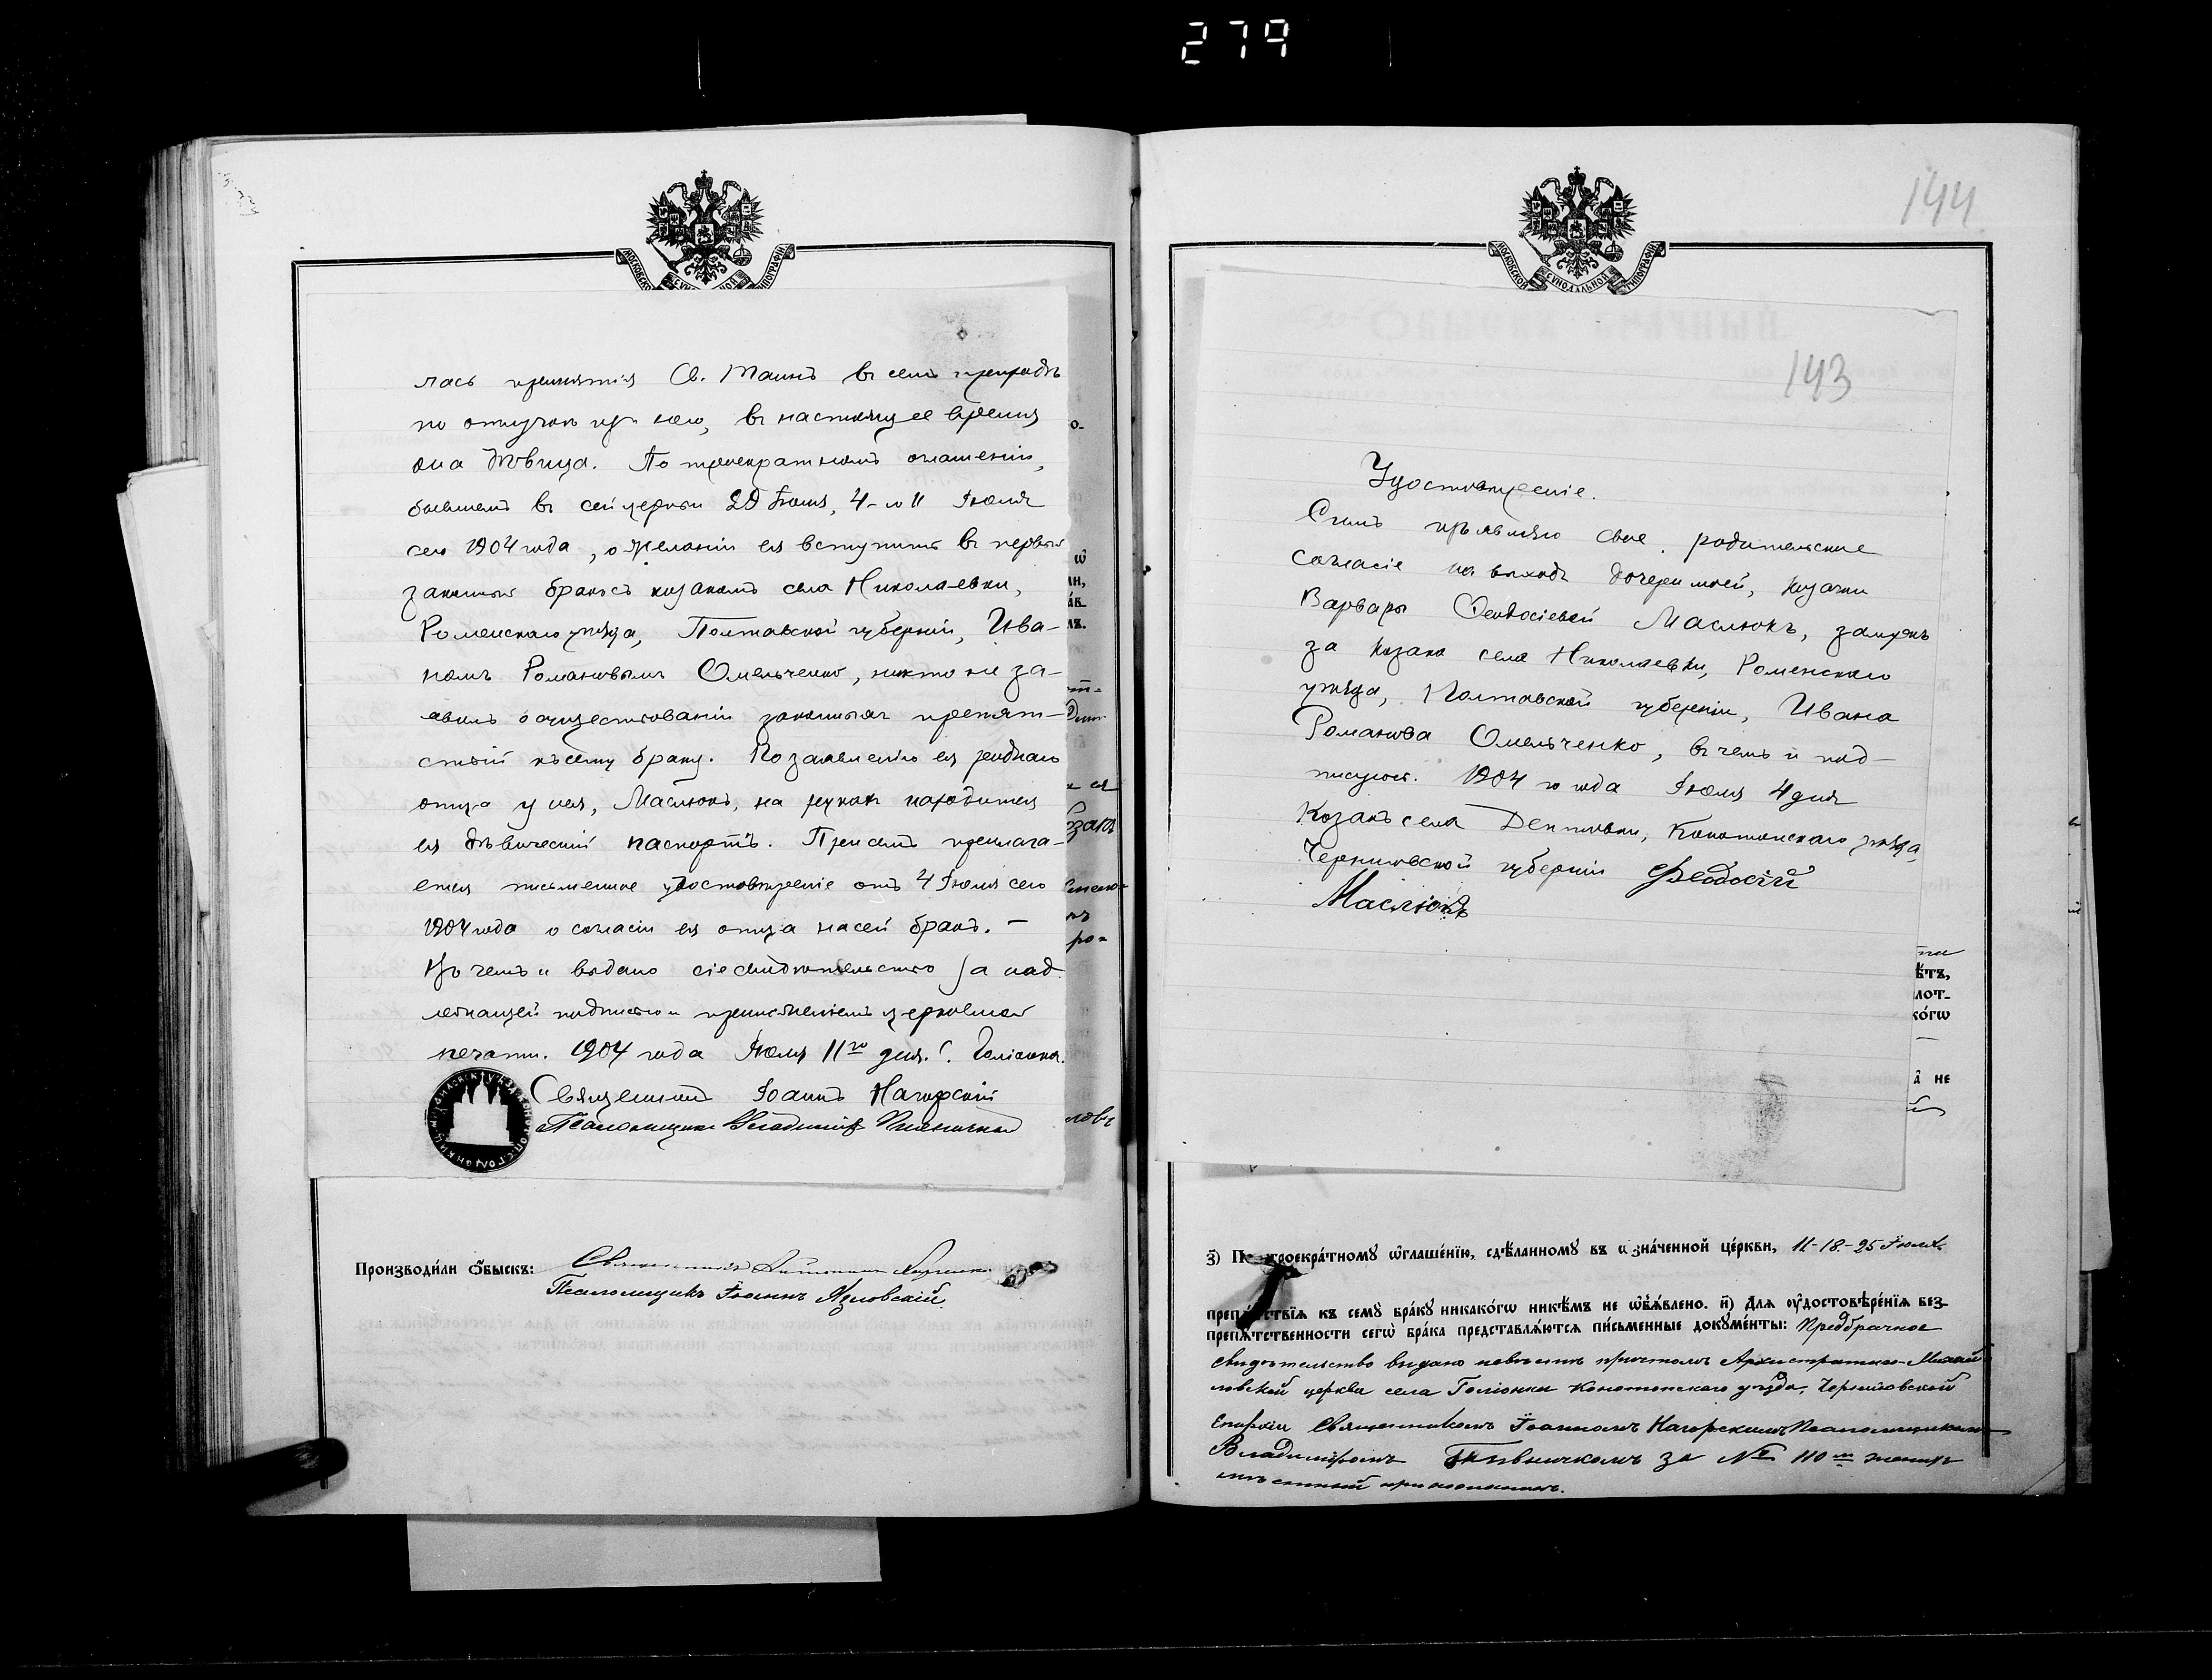 279
МОСКОВСКОЙ СѴНОДАЛЬНОЙ ТИПОГРАФІИ
лась принятія Св. Таинъ въ семъ приходѣ
по отлучкѣ изъ него, въ настоящее время
она дѣвица. По троекратномъ оглашеніи,
бывшемъ въ сей церкви Іюля, 4-го 11 Іюля
сего 1904 года, о желаніи ея вступить въ первый
законный бракъ съ козакомъ села Николаевки,
Роменскаго уѣзда, Полтавской губерніи, Ива-
номъ Романовымъ Омельченко, никто не за-
явилъ о существованіи законныхъ препят-
ствій къ сему браку. По заявленію ея роднаго
отца у нея, Маслюкъ, на рукахъ находится
ея дѣвическій паспортъ. При семъ прилага-
ется письменное удостовѣреніе отъ 4 Іюля сего
1904 года о согласіи ея отца на сей бракъ. —
Въ чемъ и выдано сіе свидѣтельство за над-
лежащей подписью и приложеніемъ церковной
печати. 1904 года Іюля 11го дня. С. Голіонка.
Священникъ Іоаннъ Нагорскій
Псаломщикъ Владиміръ
Произво́дили ѻ҆́быскъ: Священникъ
Псаломщикъ Іоаннъ Язловскій.
144
МОСКОВСКОЙ СѴНОДАЛЬНОЙ ТИПОГРАФІИ
143
Удостовѣреніе.
Симъ изъявляю свое родительское
согласіе на выходъ дочери моей, козачки
Варвары Феодосіевой Маслюкъ, замужъ
за козака села Николаевки, Роменскаго
уѣзда, Полтавской губерніи, Ивана
Романова Омельченко, въ чемъ и под-
писуюсь. 1904 го года Іюля 4 дня
Козакъ села Дептовки, Конотопскаго уѣзда,
Черниговской губерніи Феодосій
Маслюкъ
з҃) По троекра́тному ѡ҆глаше́нїю, сдѣ́ланному въ ѡ҆зна́ченной це́ркви, 11-18-25 Іюля
препѧ́тствїѧ къ сему̀ бра́ку никако́гѡ никѣ́мъ не ѡ҆б̾ѧ́влено. и҃) Длѧ ᲂу҆достовѣре́нїѧ без-
препѧ́тственности сегѡ̀ бра́ка представлѧ́ютсѧ пи́сьменные докуме́нты: Предбрачное
свидѣтельство выдано невѣстѣ причтомъ Архистратиго-Михай
ловской церкви села Голіонки Конотопскаго уѣзда, Черниговской
Епархіи Священникомъ Іоанномъ Нагорскимъ Псаломщикомъ
Владиміромъ за № 110 женихъ